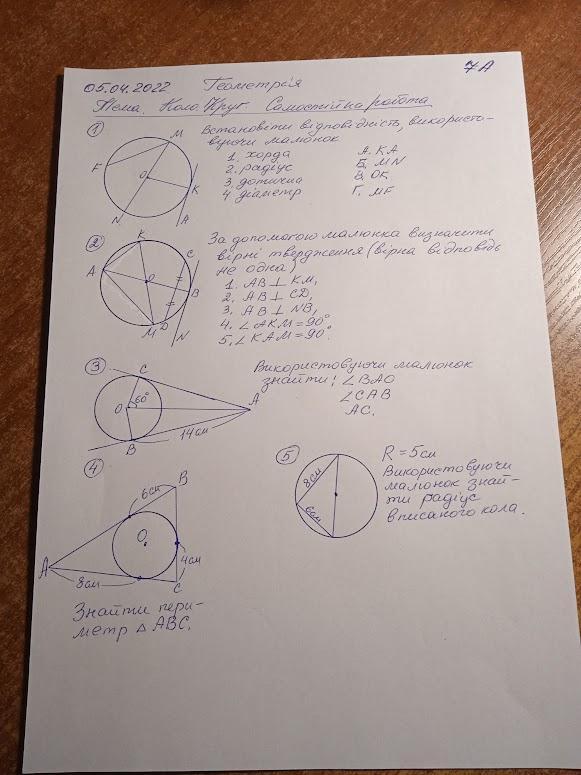 7А
05.04.2022 Геометрія
Тема. Коло. Круг. Самостійна робота
1 Встановіти відповідність, використо-
вуючи малюнок
1. хорда А. KA
2. радіус Б. MN
3. дотична В. OK
4. діаметр Г. MF
M
F
O
K
N
A
2 За допомогою малюнка визначити
вірні твердження (вірна відповідь
не одна)
1. AB⊥KM,
2. AB⊥CD,
3. AB⊥NB,
4. ∠AKM=90°
5. ∠KAM=90°.
K
C
A
O
B
M D
N
3 Використовуючи малюнок
знайти: ∠BAO
∠CAB
AC.
C
O 60°
A
B
14см
4
6см
B
O
4см
A
8см
C
Знайти пери-
метр △ABC.
5 R=5см
Використовуючи
малюнок знай-
ти радіус
вписаного кола.
8см
6см